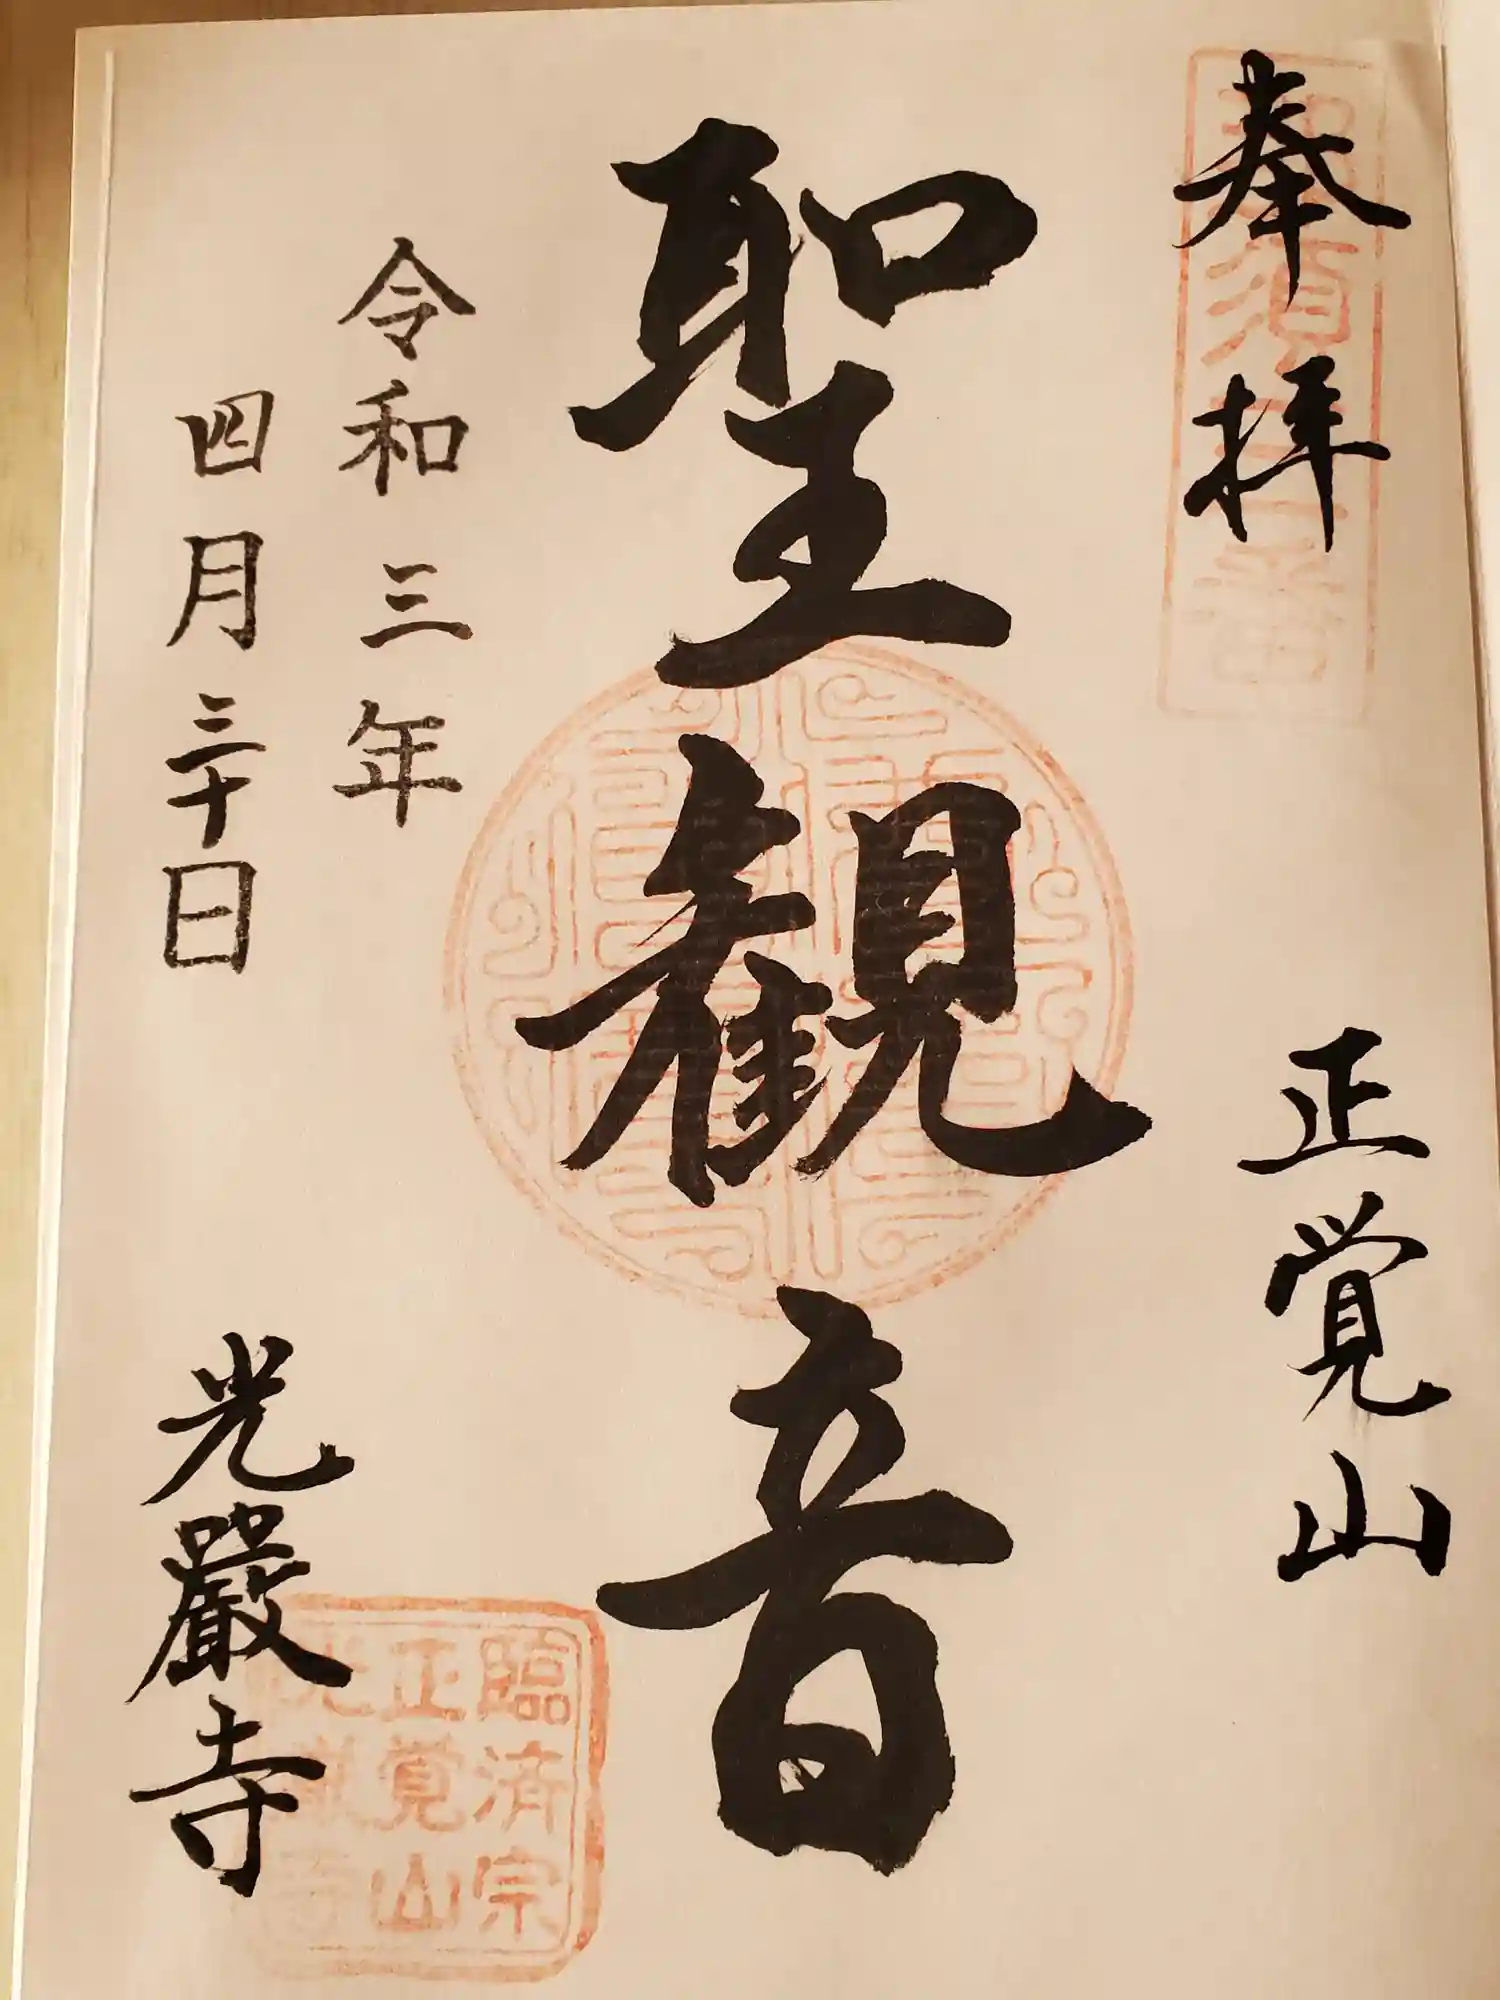 奉拝
正覚山
聖観音
令和三年
四月三十日
光嚴寺
臨済宗
正覚山